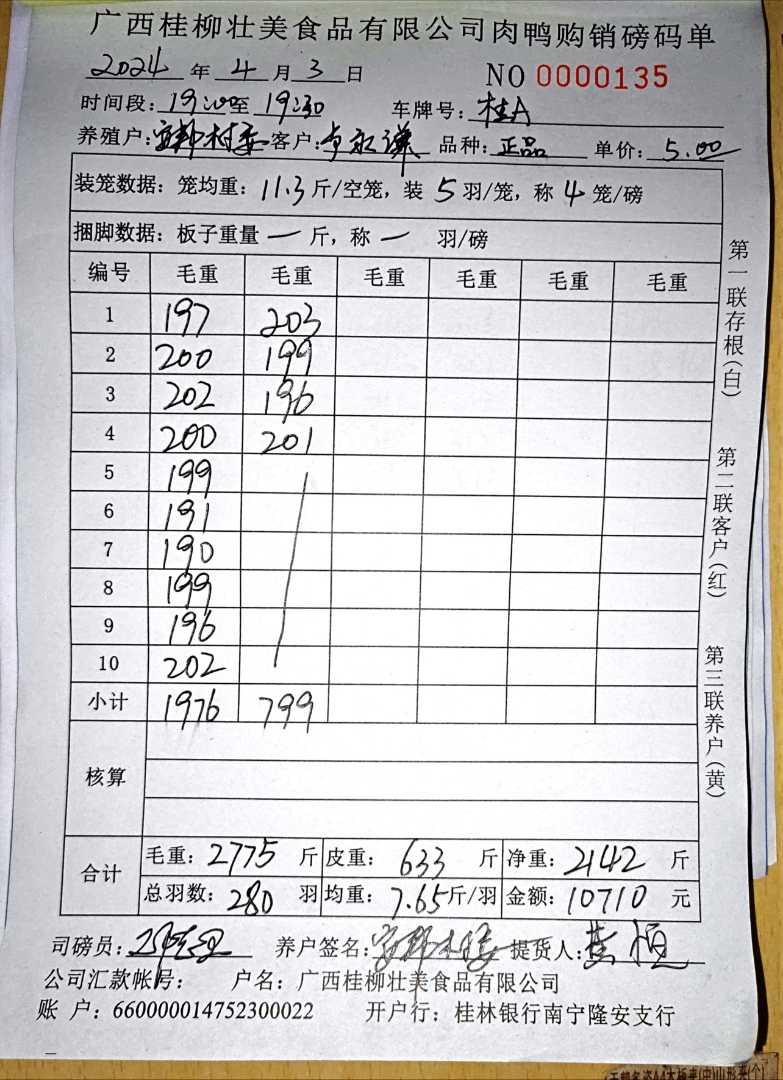 广西桂柳壮美食品有限公司肉鸭购销磅码单
2024 年 4 月 3 日 NO 0000135
时间段: 19:00至 19:30 车牌号: 桂A
养殖户: 村委 客户: 品种: 正品 单价: 5.00
装笼数据: 笼均重: 11.3 斤/空笼, 装 5 羽/笼, 称 4 笼/磅
捆脚数据: 板子重量 一 斤, 称 一 羽/磅
编号 毛重 毛重 毛重 毛重 毛重 毛重
1 197 203
2 200 199
3 202 196
4 200 201
5 199
6 191
7 190
8 199
9 196
10 202
小计 1976 799
核算
合计 毛重: 2775 斤 皮重: 633 斤 净重: 2142 斤
总羽数: 280 羽 均重: 7.65 斤/羽 金额: 10710 元
司磅员: 养户签名: 提货人: 恒
公司汇款帐号: 户名: 广西桂柳壮美食品有限公司
账 户: 660000014752300022 开户行: 桂林银行南宁隆安支行
第一联存根(白)
第二联客户(红)
第三联养户(黄)